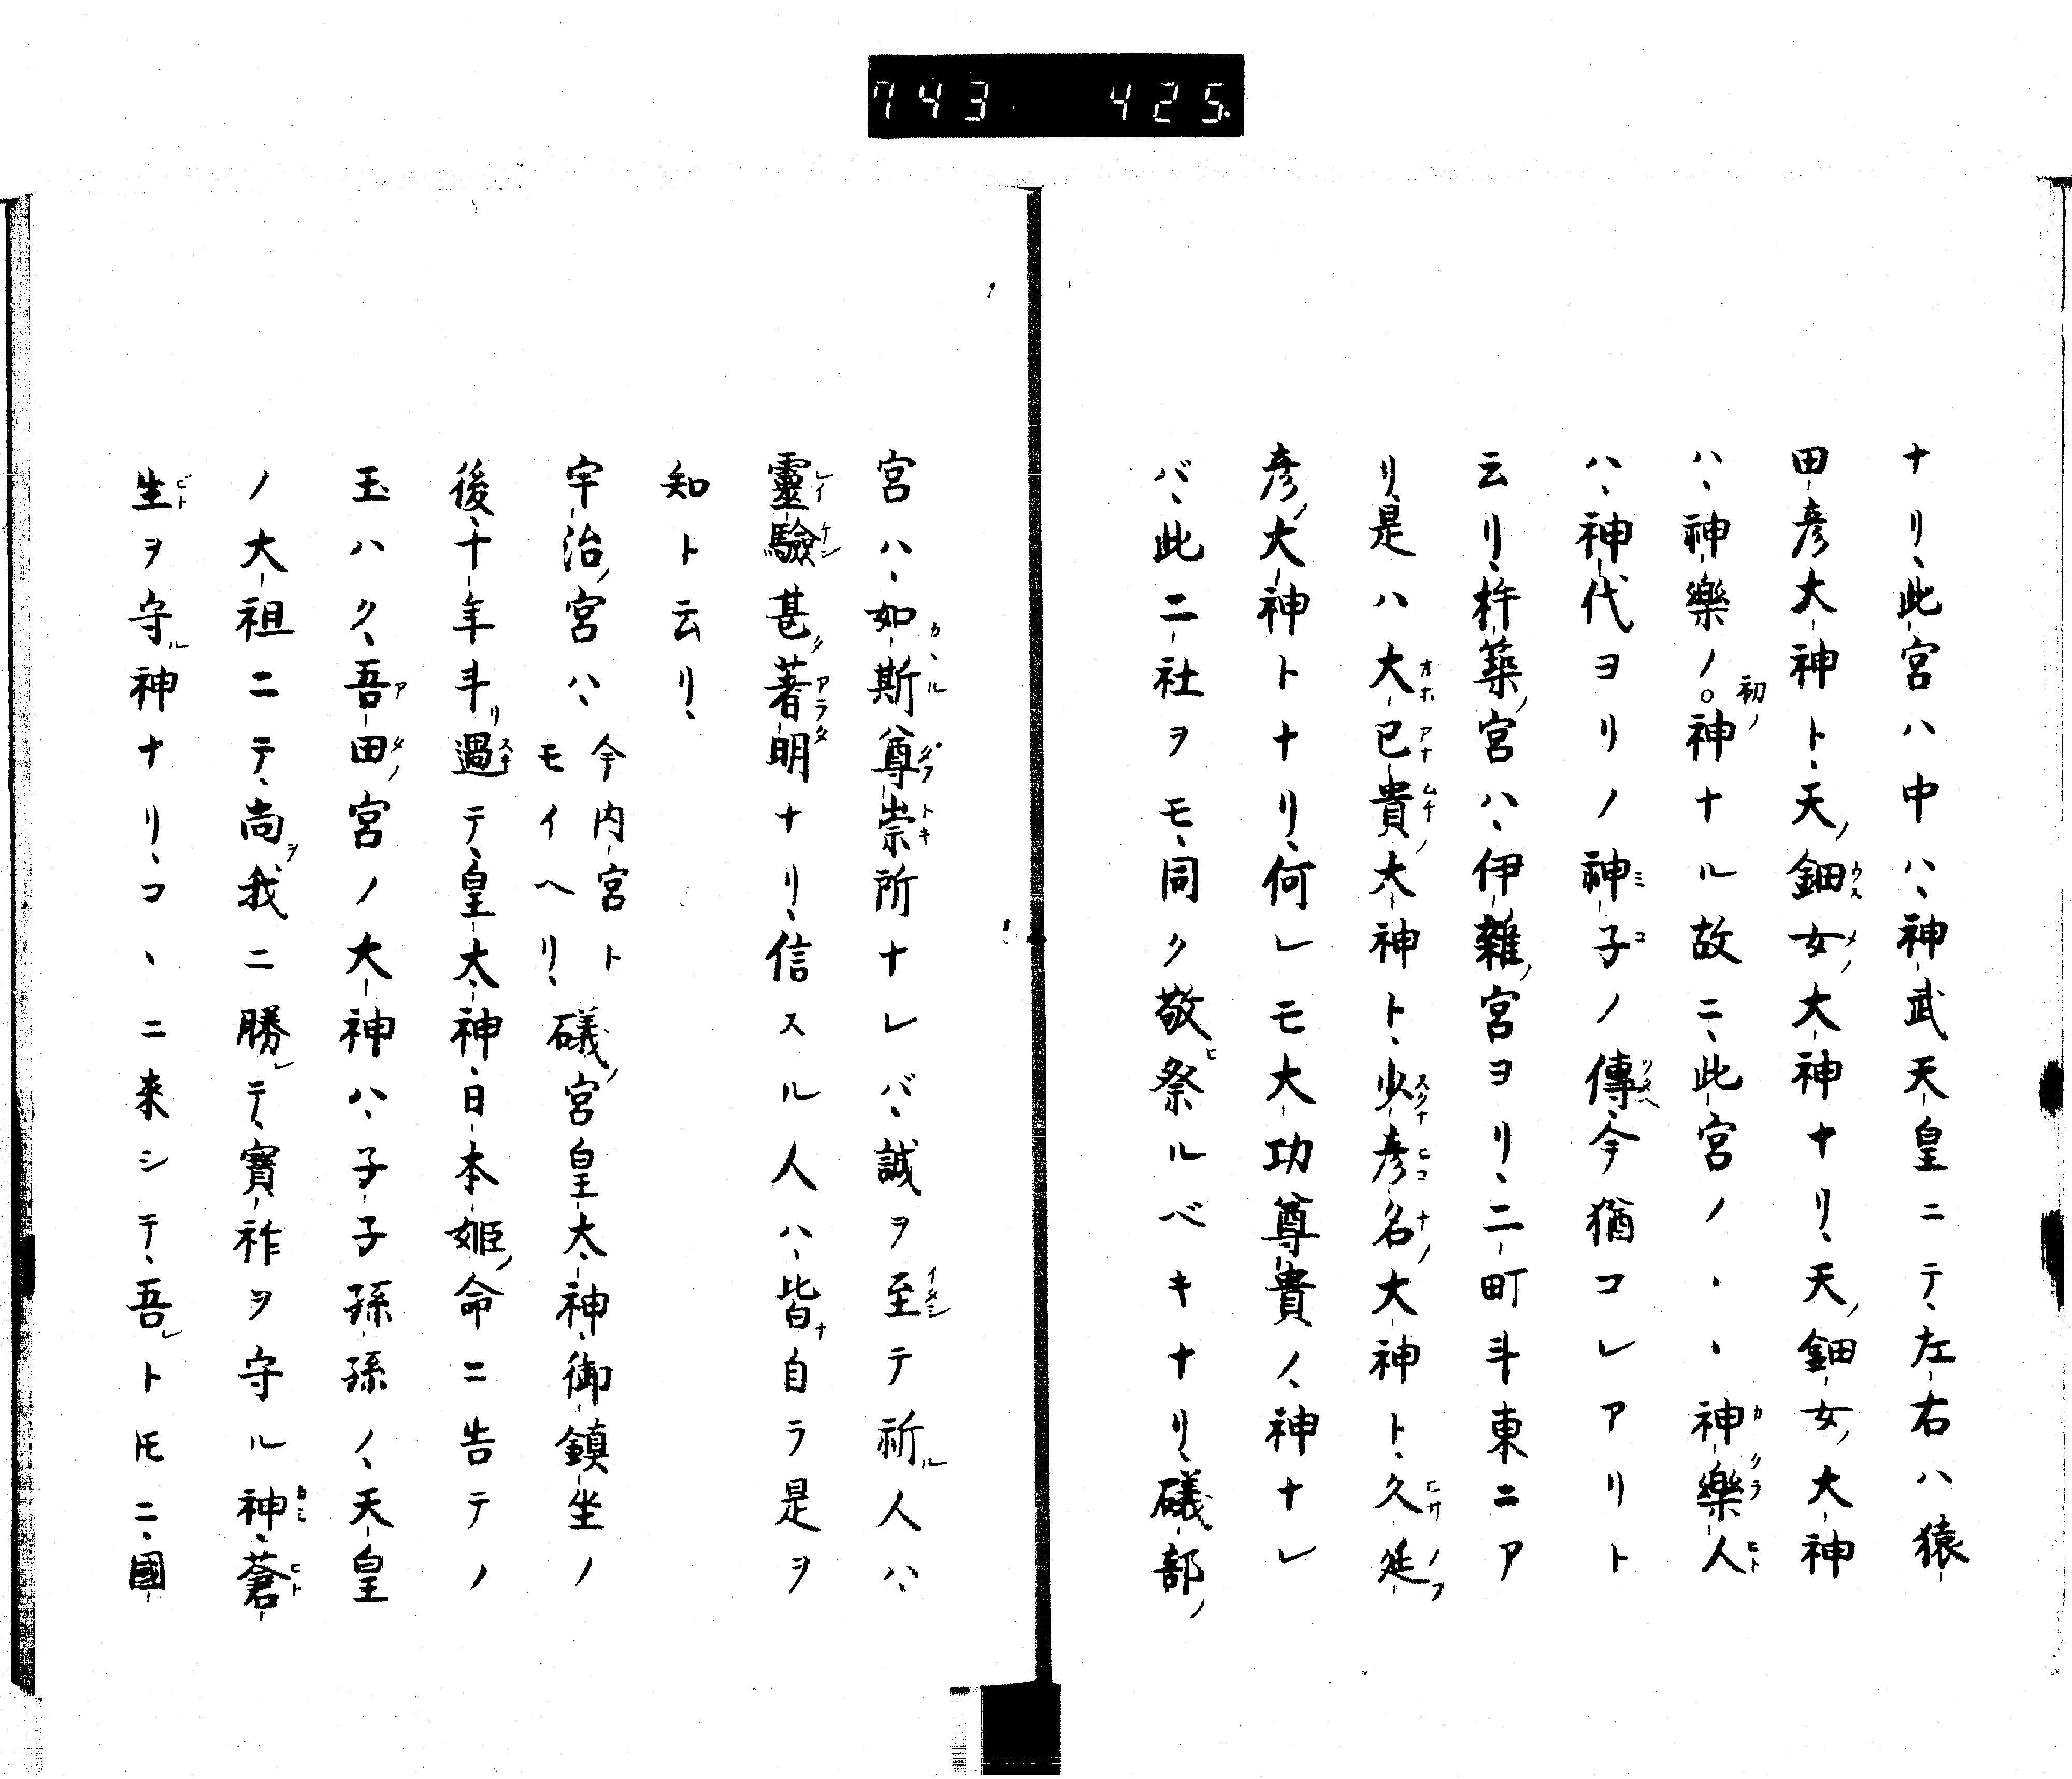 743 425
ナリ、此宮ハ中ハ、神武天皇ニテ、左右ハ猿
田彦大神ト、天ノ鈿女ノ大神ナリ、天ノ鈿女ノ大神
ハ、神樂ノ初ノ神ナル故ニ、此宮ノヽヽ神樂人
ハ、神代ヨリノ神子ノ傳今猶コレアリト
云リ、杵築ノ宮ハ、伊雜ノ宮ヨリ、二町斗東ニア
リ、是ハ大已貴ノ大神ト、少彦名ノ大神ト、久延
彦ノ大神トナリ、何レモ大功尊貴ノ神ナレ
バ、此二社ヲモ、同ク敬ヒ祭ルベキナリ、礒部ノ
宮ハ、如斯尊崇所ナレバ、誠ヲ至テ祈ル人ハ、
靈驗甚タ著明ナリ、信スル人ハ、皆ナ自ラ是ヲ
知ト云リ、
宇治ノ宮ハ、今内宮トモイヘリ、礒ノ宮皇大神、御鎮坐ノ
後、十年斗リ過テ、皇大神、日本姫ノ命ニ告テノ
玉ハク、吾田ノ宮ノ大神ハ、子子孫孫ノ、天皇
ノ大祖ニテ、尚ヲ我ニ勝レテ、寳祚ヲ守ル神、蒼
生ヲ守ル神ナリ、コヽニ来シテ、吾レトモニ、國